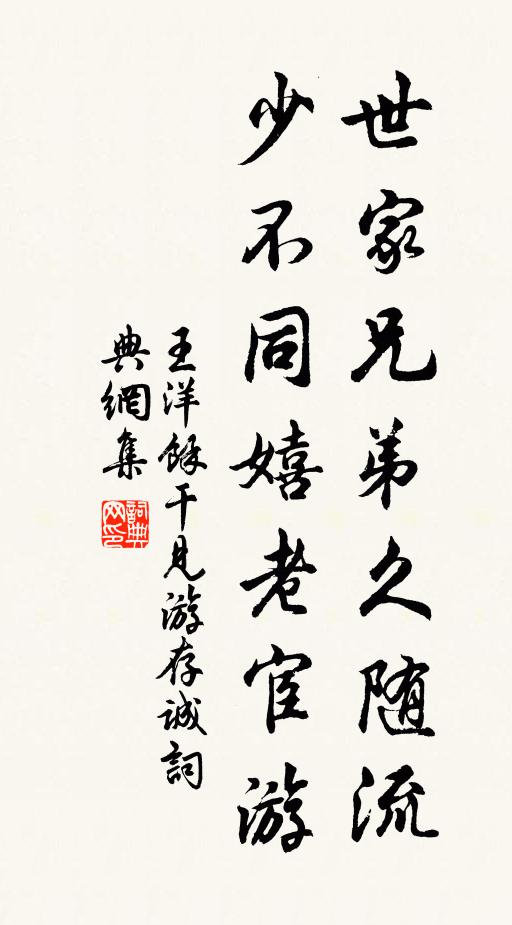 世家兄弟久随流
少不同嬉老宦游
王洋餘干見游存誠詞
典網集
詞典
网印